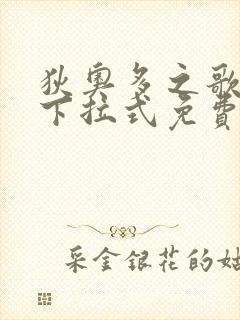 狄奥多之歌
下拉式免費
采金銀花的姑